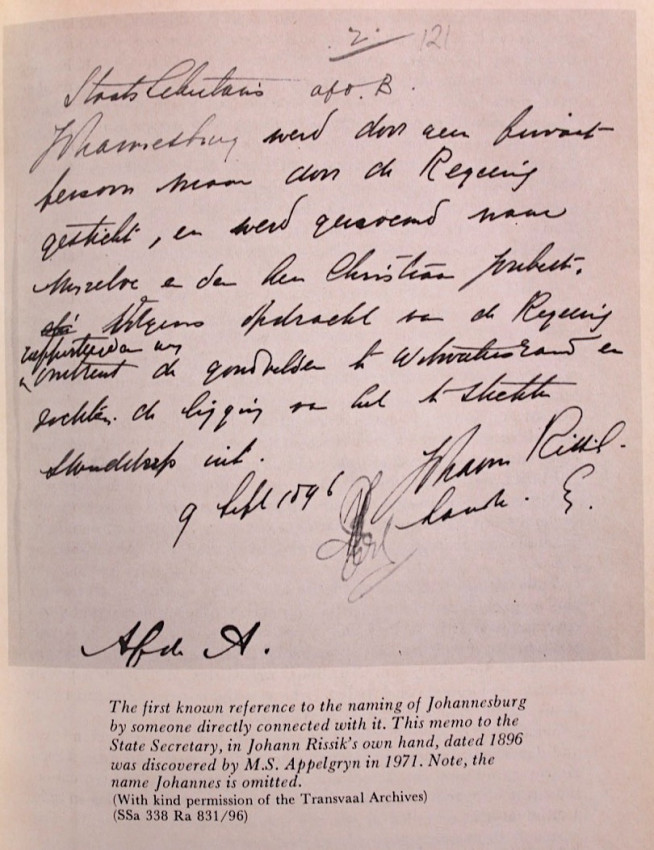 2. 121
Staats Sekretaris afd. B.
Johannesburg werd door geen privaat
persoon maar door de Regeering
gesticht, en werd genoemd naar
Mijzelve en den Heer Christiaan Joubert.
Wij volgens opdracht van de Regeering
rapporteerden wij
omtrent de goudvelden te Witwatersrand en
zochten de ligging van het te stichten
Standdorp uit.
9 Sept 1896 Johann Rissik.
Afde A.
The first known reference to the naming of Johannesburg
by someone directly connected with it. This memo to the
State Secretary, in Johann Rissik's own hand, dated 1896
was discovered by M.S. Appelgryn in 1971. Note, the
name Johannes is omitted.
(With kind permission of the Transvaal Archives)
(SSa 338 Ra 831/96)